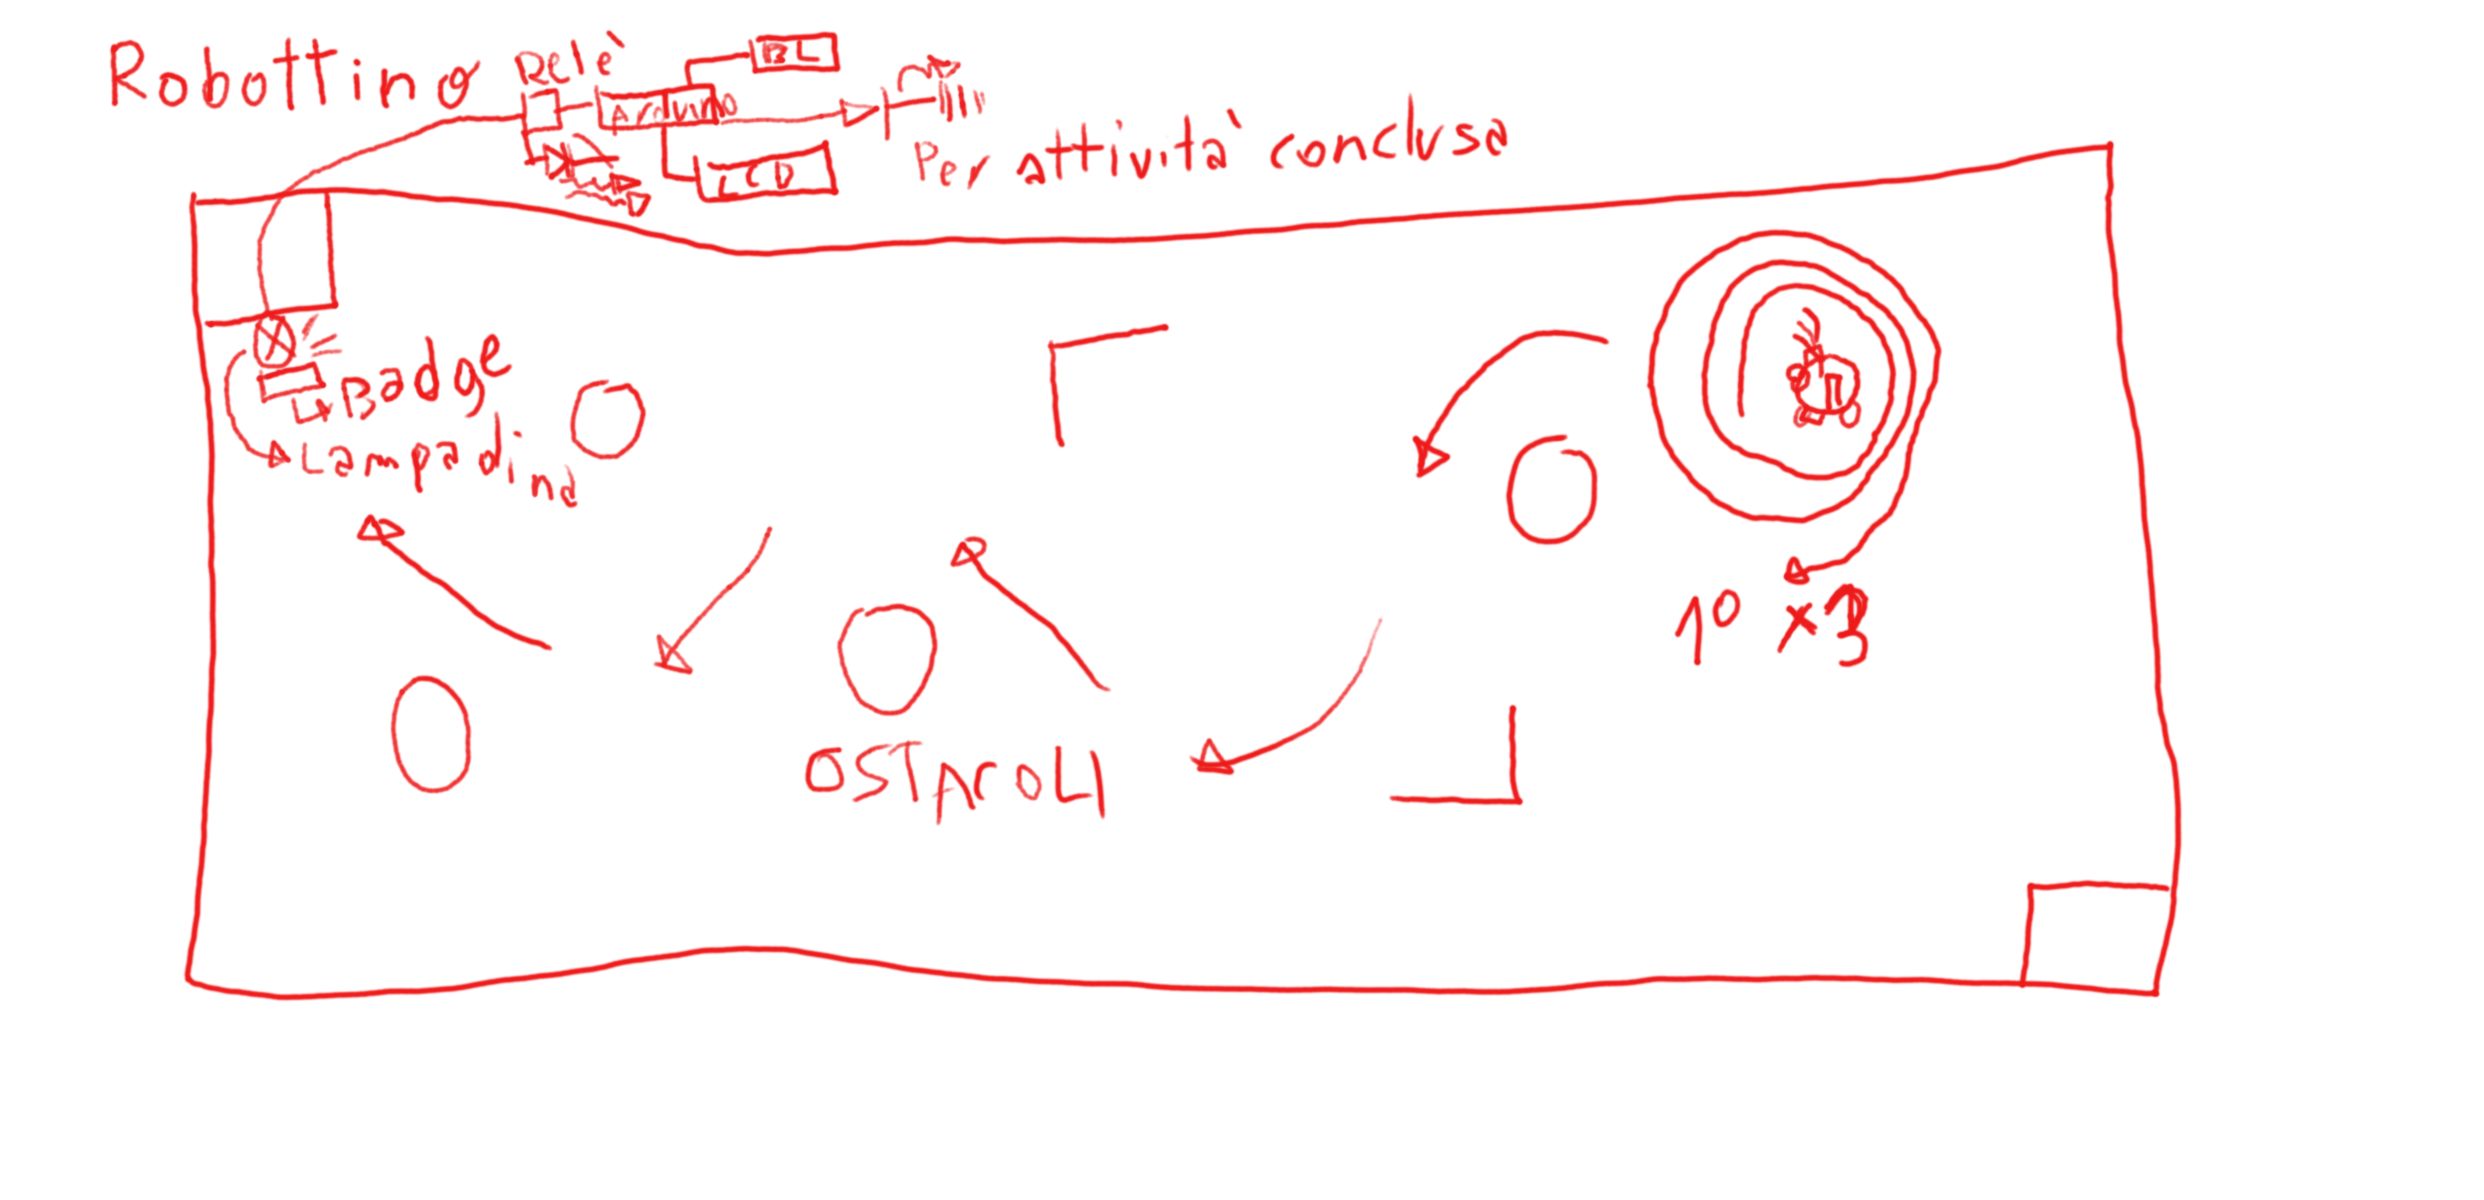 Robotting
Relè
BL
Arduino
LCD
Per attività conclusa
Badge
Lampadina
1° x3
OSTACOLI